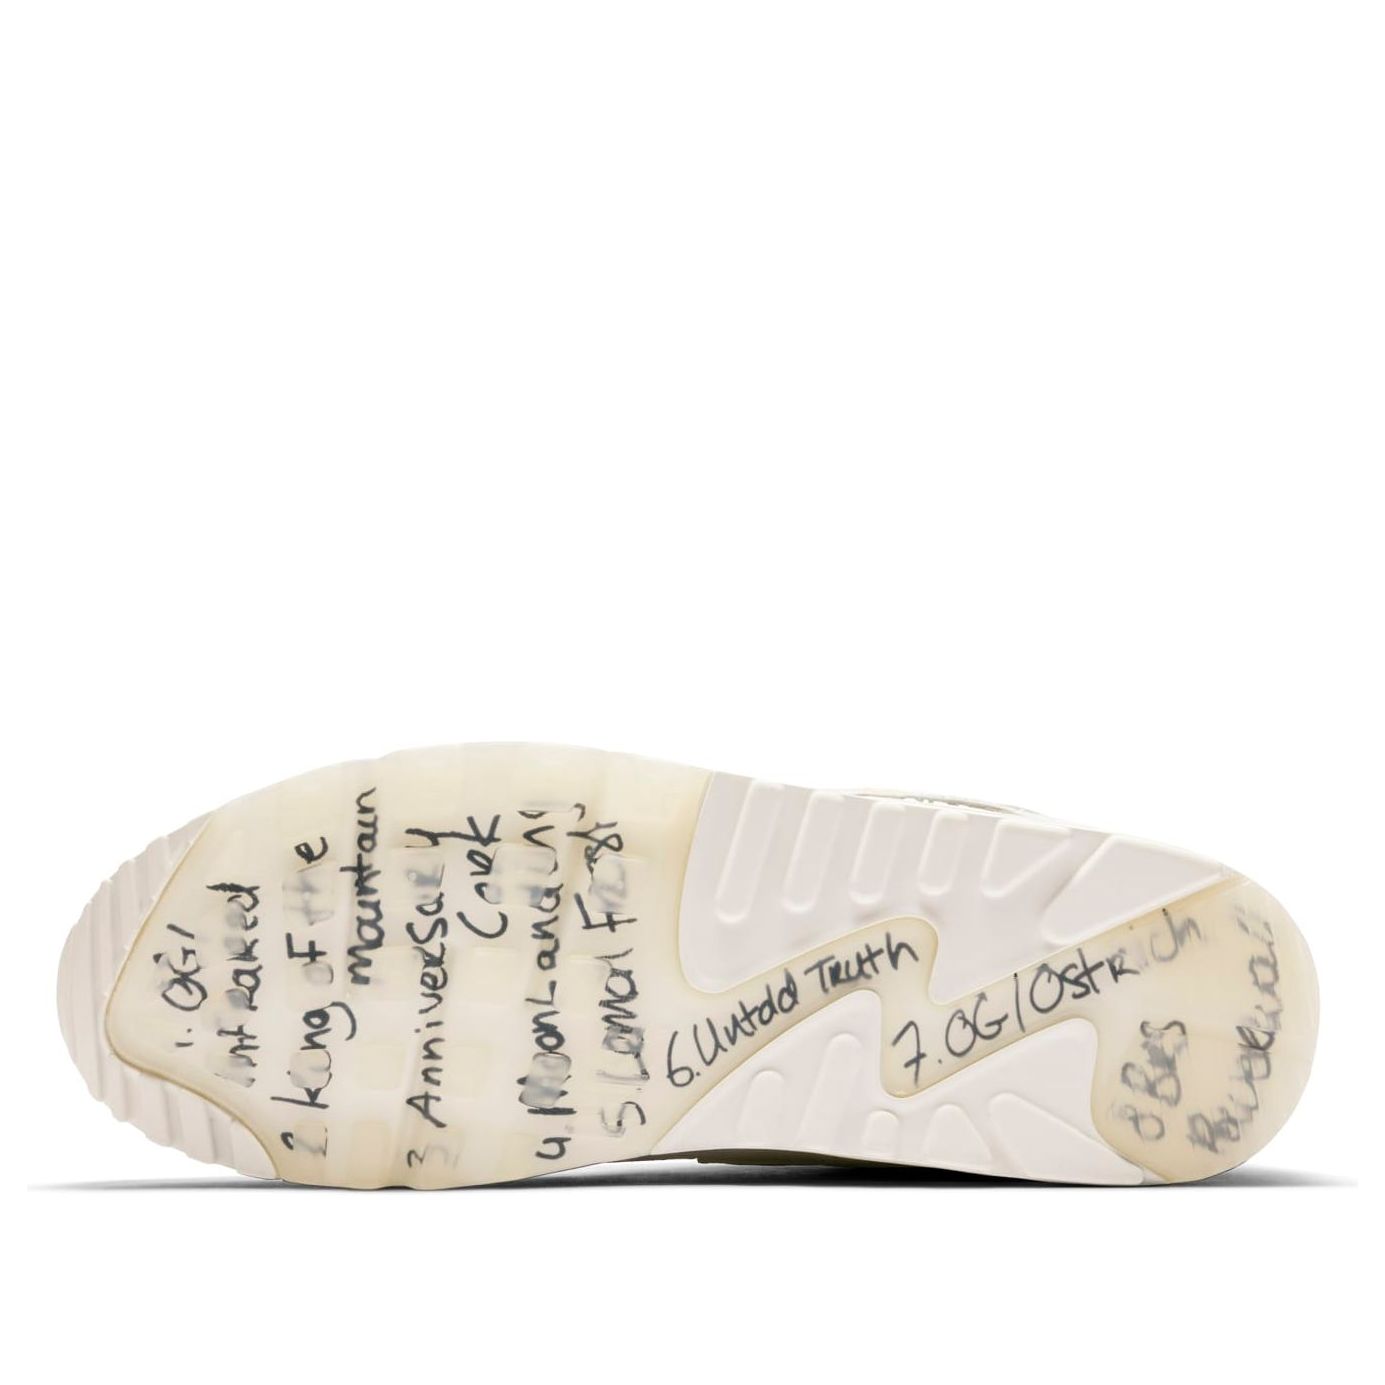 1. OG/
Infrared
2 king of the
mountain
3 Anniversary
Cork
4. Moon Landing
5. Lemod Frost
6. Untold Truth
7. OG/Ostrich
8 Bres